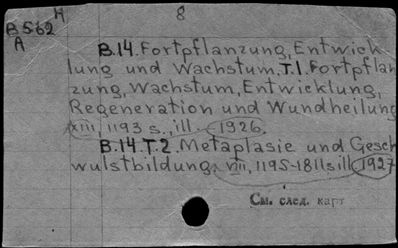 H 8
B 562
A
B.14. Fortpflanzung, Entwick
lung und Wachstum. T.1. Fortpflan
zung, Wachstum, Entwicklung,
Regeneration und Wundheilung
xiii, 1193 s., ill. 1926
B.14.T.2. Metaplasie und Gesch
wulstbildung. viii, 1195-1811 s ill. 1927
См. след. карт